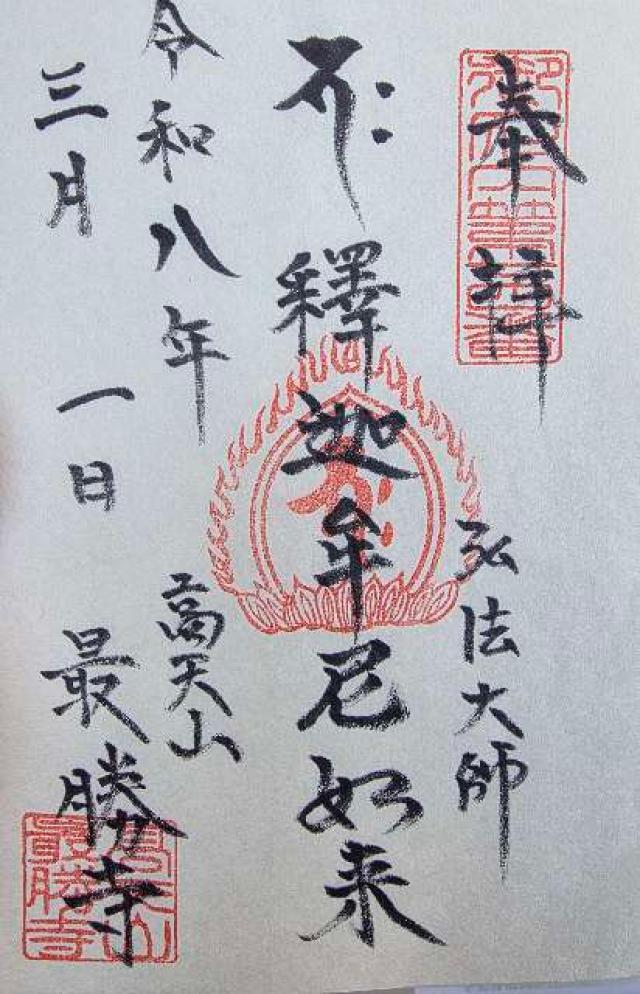 奉拝
弘法大師
釋迦牟尼如来
令和八年
三月一日
高天山
最勝寺
高天山
最勝寺